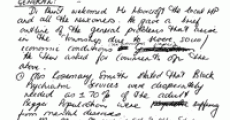 GENERAL:
Dr Hunt welcomed Mr Moncroft the local MP
and all the newcomers. He gave a brief
outline of the general problems that arise
in the township due to above socio/
economic conditions
He then asked for comments on
the above.
Rosemary Smith stated that Black
Psychiatric Services was desperately
needed as 70% of the
Population were suffering
from mental diseases